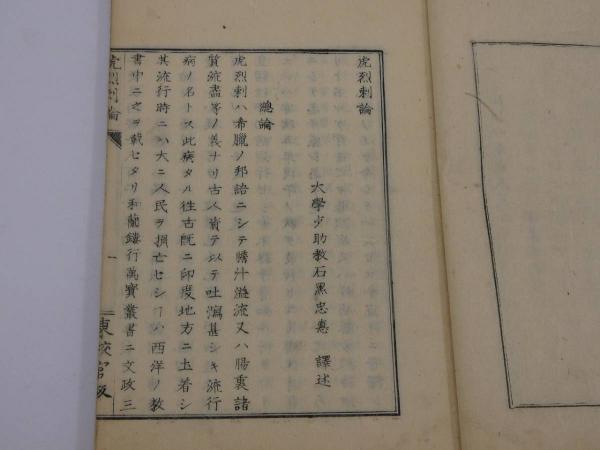 虎烈剌論
大學少助教石黒忠悳 譯述
總論
虎烈剌ハ希臘ノ邦語ニシテ膽汁溢流又ハ腸裏諸
質流盡等ノ義ナリ古人資テ以テ吐瀉甚シキ流行
病ノ名トス此病タル往古既ニ印度地方ニ土着シ
其流行時ニハ大ニ人民ヲ損亡セシヿハ西洋ノ教
書中ニ之ヲ載セタリ和蘭鏤行萬寶叢書ニ文政三
虎烈剌論
一
東校官版